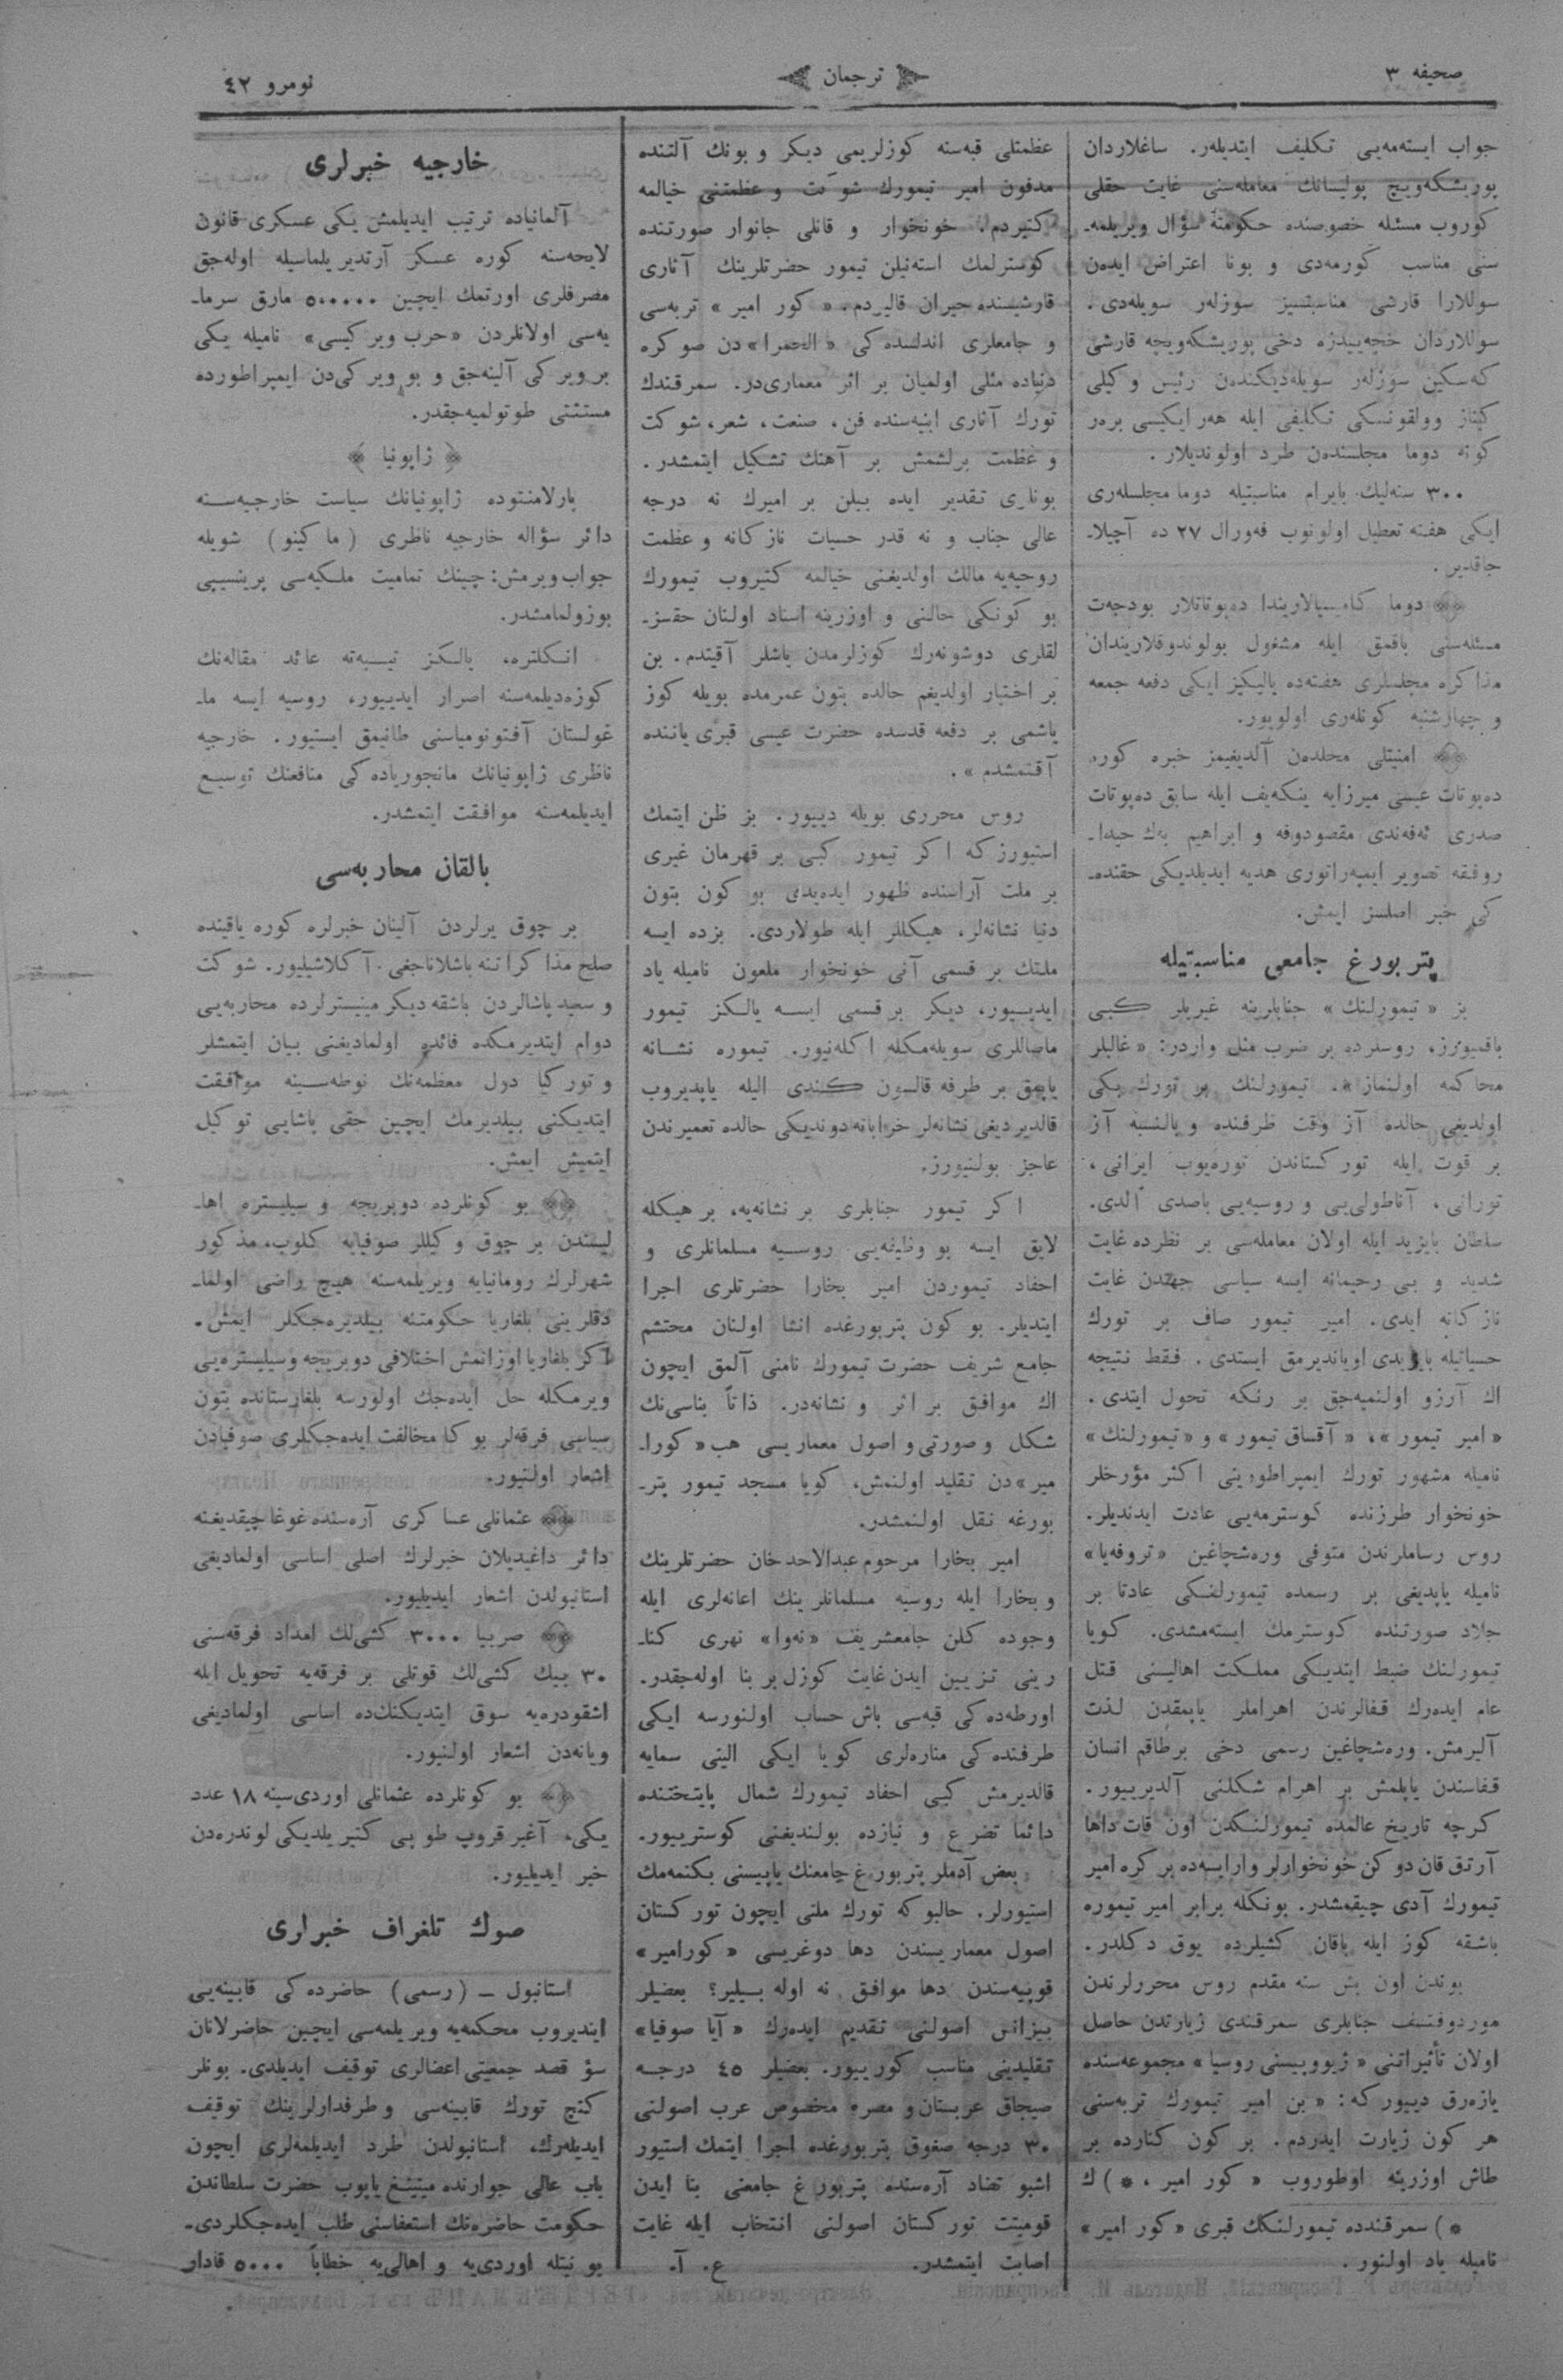 صحيفه ٣
ترجمان
نومرو ٤٢
جواب ايسته‌مه‌يى تكليف ايتديلەر. ساغلاردان
پوريشكه‌ويچ پوليسانك معامله‌سنى غايت حقلى
كوروب مسئله خصوصنده حكومته سؤال ويريلمه‌ـ
سنى مناسب كورمه‌دى و بونا اعتراض ايده‌ن
سوللارا قارشى مناسبتسيز سوزلەر سويله‌دى.
سوللاردان خچه‌ييدزه دخى پوريشكه‌ويچه قارشى
كه‌سكين سوزلەر سويله‌ديكنده‌ن رئيس وكيلى
كيناز وولقونسكى تكليفى ايله هەر ايكيسى بره‌ر
كونه دوما مجلسنده‌ن طرد اولونديلار.
٣٠٠ سنه‌ليك بايرام مناسبتيله دوما مجلسله‌رى
ايكى هفته تعطيل اولونوب فه‌ورال ٢٧ ده آچيلاـ
جاقدير.
دوما كاميسيالاريندا ده‌پوتاتلار بودجه‌ت
مسئله‌سنى باقمق ايله مشغول بولوندوقلاريندان
مذاكره مجلسلرى هفته‌ده يالكيز ايكى دفعه جمعه
و چهارشنبه كونله‌رى اولويور.
امنيتلى محلده‌ن آلديغيمز خبره كوره
ده‌پوتات عيسى ميرزايه ينكه‌يف ايله سابق ده‌پوتات
صدرى ئه‌فه‌ندى مقصودوفه و ابراهيم به‌ك حيدـ
روفقه تصوير ايمپه‌راتورى هديه ايديلديكى حقنده‌ـ
كى خبر اصلسز ايمش.
پتربورغ جامعى مناسبتيله
بز «تيمورلنك» جنابلرينه غيريلر كبى
باقميورز، روسلرده بر ضرب مثل واردر: «غالبلر
محاكمه اولنماز». تيمورلنك بر تورك بكى
اولديغى حالده آز وقت ظرفنده و بالنسبه آز
بر قوت ايله توركستاندن توره‌يوب ايرانى،
تورانى، آناطولى‌يى و روسيه‌يى باصدى آلدى.
سلطان بايزيد ايله اولان معامله‌سى بر نظرده غايت
شديد و بى رحيمانه ايسه سياسى جهتدن غايت
نازكانه ايدى. امير تيمور صاف بر تورك
حسياتيله بايزيدى اويانديرمق ايستدى. فقط نتيجه
اك آرزو اولنميه‌جق بر رنكه تحول ايتدى.
«امير تيمور»، «آقساق تيمور» و «تيمورلنك»
ناميله مشهور تورك ايمپراطورينى اكثر مؤرخلر
خونخوار طرزنده كوسترمه‌يى عادت ايدنديلر.
روس رساملرندن متوفى وره‌شچاغين «تروفه‌يا»
ناميله ياپديغى بر رسمده تيمورلنكى عادتا بر
جلاد صورتنده كوسترمك ايسته‌مشدى. كويا
تيمورلنك ضبط ايتديكى مملكت اهاليسنى قتل
عام ايده‌رك قفالرندن اهراملر ياپمقدن لذت
آليرمش. وره‌شچاغين رسمى دخى برطاقم انسان
قفاسندن ياپلمش بر اهرام شكلنى آلديرييور.
كرچه تاريخ عالمده تيمورلنكدن اون قات داها
آرتق قان دوكن خونخوارلر وارايسه‌ده بر كره امير
تيمورك آدى چيقمشدر. بونكله برابر امير تيموره
باشقه كوز ايله باقان كشيلرده يوق دكلدر.
بوندن اون بش سنه مقدم روس محررلرندن
موردوفتسف جنابلرى سمرقندى زيارتدن حاصل
اولان تأثيراتنى «ژيووپيسنى روسيا» مجموعه‌سنده
يازه‌رق ديييور كه: «بن امير تيمورك تربه‌سنى
هر كون زيارت ايدردم. بر كون كنارده بر
طاش اوزرينه اوطوروب «كور امير، *)ك
*) سمرقندده تيمورلنكك قبرى «كور امير»
ناميله ياد اولنور.
عظمتلى قبه‌سنه كوزلريمى ديكر و بونك آلتنده
مدفون امير تيمورك شوكت و عظمتنى خيالمه
كتيردم. خونخوار و قانلى جانوار صورتنده
كوسترلمك استه‌نيلن تيمور حضرتلرينك آثارى
قارشيسنده حيران قاليردم. «كور امير» تربه‌سى
و جامعلرى اندلسده‌كى «الحمرا»دن صوكره
دنياده مثلى اولميان بر اثر معمارى‌در. سمرقندك
تورك آثارى ابنيه‌سنده فن، صنعت، شعر، شوكت
و عظمت برلشمش بر آهنك تشكيل ايتمشدر.
بونارى تقدير ايده بيلن بر اميرك نه درجه
عالى جناب و نه قدر حسيات نازكانه و عظمت
روحيه‌يه مالك اولديغنى خيالمه كتيروب تيمورك
بو كونكى حالنى و اوزرينه اسناد اولنان حقسزـ
لقلرى دوشونه‌رك كوزلرمدن ياشلر آقيتدم. بن
بر اختيار اولديغم حالده بتون عمرمده بويله كوز
ياشمى بر دفعه قدسده حضرت عيسى قبرى ياننده
آقتمشدم».
روس محررى بويله ديييور. بز ظن ايتمك
استيورزكه اكر تيمور كبى بر قهرمان غيرى
بر ملت آراسنده ظهور ايده‌يدى بو كون بتون
دنيا نشانه‌لر، هيكللر ايله طولاردى. بزده ايسه
ملتك بر قسمى آنى خونخوار ملعون ناميله ياد
ايدييور، ديكر بر قسمى ايسه يالكز تيمور
ماصاللرى سويله‌مكله اكله‌نيور. تيموره نشانه
ياپمق بر طرفه قالسون كندى اليله ياپديروب
قالديرديغى نشانه‌لر خرابانه دونديكى حالده تعميرندن
عاجز بولنيورز.
اكر تيمور جنابلرى بر نشانه‌يه، بر هيكله
لايق ايسه بو وظيفه‌يى روسيه مسلمانلرى و
احفاد تيموردن امير بخارا حضرتلرى اجرا
ايتديلر. بو كون پتربورغده انشا اولنان محتشم
جامع شريف حضرت تيمورك نامنى آلمق ايچون
اك موافق بر اثر و نشانه‌در. ذاتاً بناسى‌نك
شكل و صورتى و اصول معماريسى هب «كوراـ
مير»دن تقليد اولنمش، كويا مسجد تيمور پترـ
بورغه نقل اولنمشدر.
امير بخارا مرحوم عبدالاحد خان حضرتلرينك
و بخارا ايله روسيه مسلمانلرينك اعانه‌لرى ايله
وجوده كلن جامع‌شريف «نه‌وا» نهرى كناـ
رينى تزيين ايدن غايت كوزل بر بنا اوله‌جقدر.
اورطه‌ده‌كى قبه‌سى باش حساب اولنورسه ايكى
طرفنده‌كى مناره‌لرى كويا ايكى الينى سمايه
قالديرمش كبى احفاد تيمورك شمال پايتختنده
دائما تضرع و نيازده بولنديغنى كوستريييور.
بعض آدملر پتربورغ جامعنك ياپيسنى بكنمه‌مك
استيورلر. حالبوكه تورك ملتى ايچون توركستان
اصول معماريسندن دها دوغريسى «كورامير»
قوپيه‌سندن دها موافق نه اوله بيلير؟ بعضيلر
بيزانس اصولنى تقديم ايده‌رك «آيا صوفيا»
تقليدينى مناسب كورييور. بعضيلر ٤٥ درجه
صيجاق عربستان و مصره مخصوص عرب اصولنى
٣٠ درجه صغوق پتربورغده اجرا ايتمك استيور
اشبو تضاد آره‌سنده پتربورغ جامعنى بنا ايدن
قوميتت توركستان اصولنى انتخاب ايله غايت
اصابت ايتمشدر. ع. آ.
خارجيه خبرلرى
آلمانياده ترتيب ايديلمش يكى عسكرى قانون
لايحه‌سنه كوره عسكر آرتديريلماسيله اوله‌جق
مصرفلرى اورتمك ايچين ٥٠٠٠٠٠ مارق سرماـ
يه‌سى اولانلردن «حرب ويركيسى» ناميله يكى
بر ويركى آلينه‌جق و بو ويركى‌دن ايمپراطورده
مستثنى طوتولميه‌جقدر.
﴿ ژاپونيا ﴾
پارلامنتوده ژاپونيانك سياست خارجيه‌سنه
دائر سؤاله خارجيه ناظرى (ماكينو) شويله
جواب ويرمش: چينك تماميت ملكيه‌سى پرينسيپى
بوزولمامشدر.
انكلتره، يالكز تيبه‌ته عائد مقاله‌نك
كوزه‌ديلمه‌سنه اصرار ايدييور، روسيه ايسه ماـ
غولستان آفتونومياسنى طانيمق ايستيور. خارجيه
ناظرى ژاپونيانك مانجورياده‌كى منافعنك توسيع
ايديلمه‌سنه موافقت ايتمشدر.
بالقان محاربه‌سى
بر چوق يرلردن آلينان خبرلره كوره ياقينده
صلح مذاكراتنه باشلاناجغى آكلاشيليور. شوكت
و سعيد پاشالردن باشقه ديكر مينيسترلرده محاربه‌يى
دوام ايتديرمكده فائده اولماديغنى بيان ايتمشلر
و توركيا دول معظمه‌نك نوطه‌سينه موافقت
ايتديكنى بيلديرمك ايچين حقى پاشايى توكيل
ايتميش ايمش.
بو كونلرده دوبريجه و سيليستره اهاـ
ليسندن بر چوق وكيللر صوفيايه كلوب، مذكور
شهرلرك رومانيايه ويريلمه‌سنه هيچ راضى اولماـ
دقلرينى بلغاريا حكومتنه بيلديره‌جكلر ايمش.
اكر بلغاريا اوزانمش اختلافى دوبريجه و سيليستره‌يى
ويرمكله حل ايده‌جك اولورسه بلغارستانده بتون
سياسى فرقه‌لر بوكا مخالفت ايده‌جكلرى صوفيادن
اشعار اولنيور.
عثمانلى عساكرى آره‌سنده غوغا چيقديغنه
دائر داغيديلان خبرلرك اصلى اساسى اولماديغى
استانبولدن اشعار ايديليور.
صربيا ٣٠٠٠ كشى‌لك امداد فرقه‌سنى
٣٠ بيك كشى‌لك قوتلى بر فرقه‌يه تحويل ايله
اشقودره‌يه سوق ايتديكنك‌ده اساسى اولماديغى
ويانه‌دن اشعار اولنيور.
بو كونلرده عثمانلى اوردى‌سينه ١٨ عدد
يكى، آغير قروپ طوپى كتيريلديكى لوندره‌دن
خبر ايديليور.
صوك تلغراف خبرلرى
استانبول ــ (رسمى) حاضرده‌كى قابينه‌يى
ايتديروب محكمه‌يه ويريلمه‌سى ايچين حاضرلانان
سؤ قصد جمعيتى اعضالرى توقيف ايديلدى. بونلر
كنج تورك قابينه‌سى و طرفدارلرينك توقيف
ايديله‌رك، استانبولدن طرد ايديلمه‌لرى ايچون
باب عالى جوارنده ميتينغ ياپوب حضرت سلطاندن
حكومت حاضره‌نك استعفاسنى طلب ايده‌جكلردى.
بو نيتله اوردى‌يه و اهالى‌يه خطاباً ٥٠٠٠ قادار